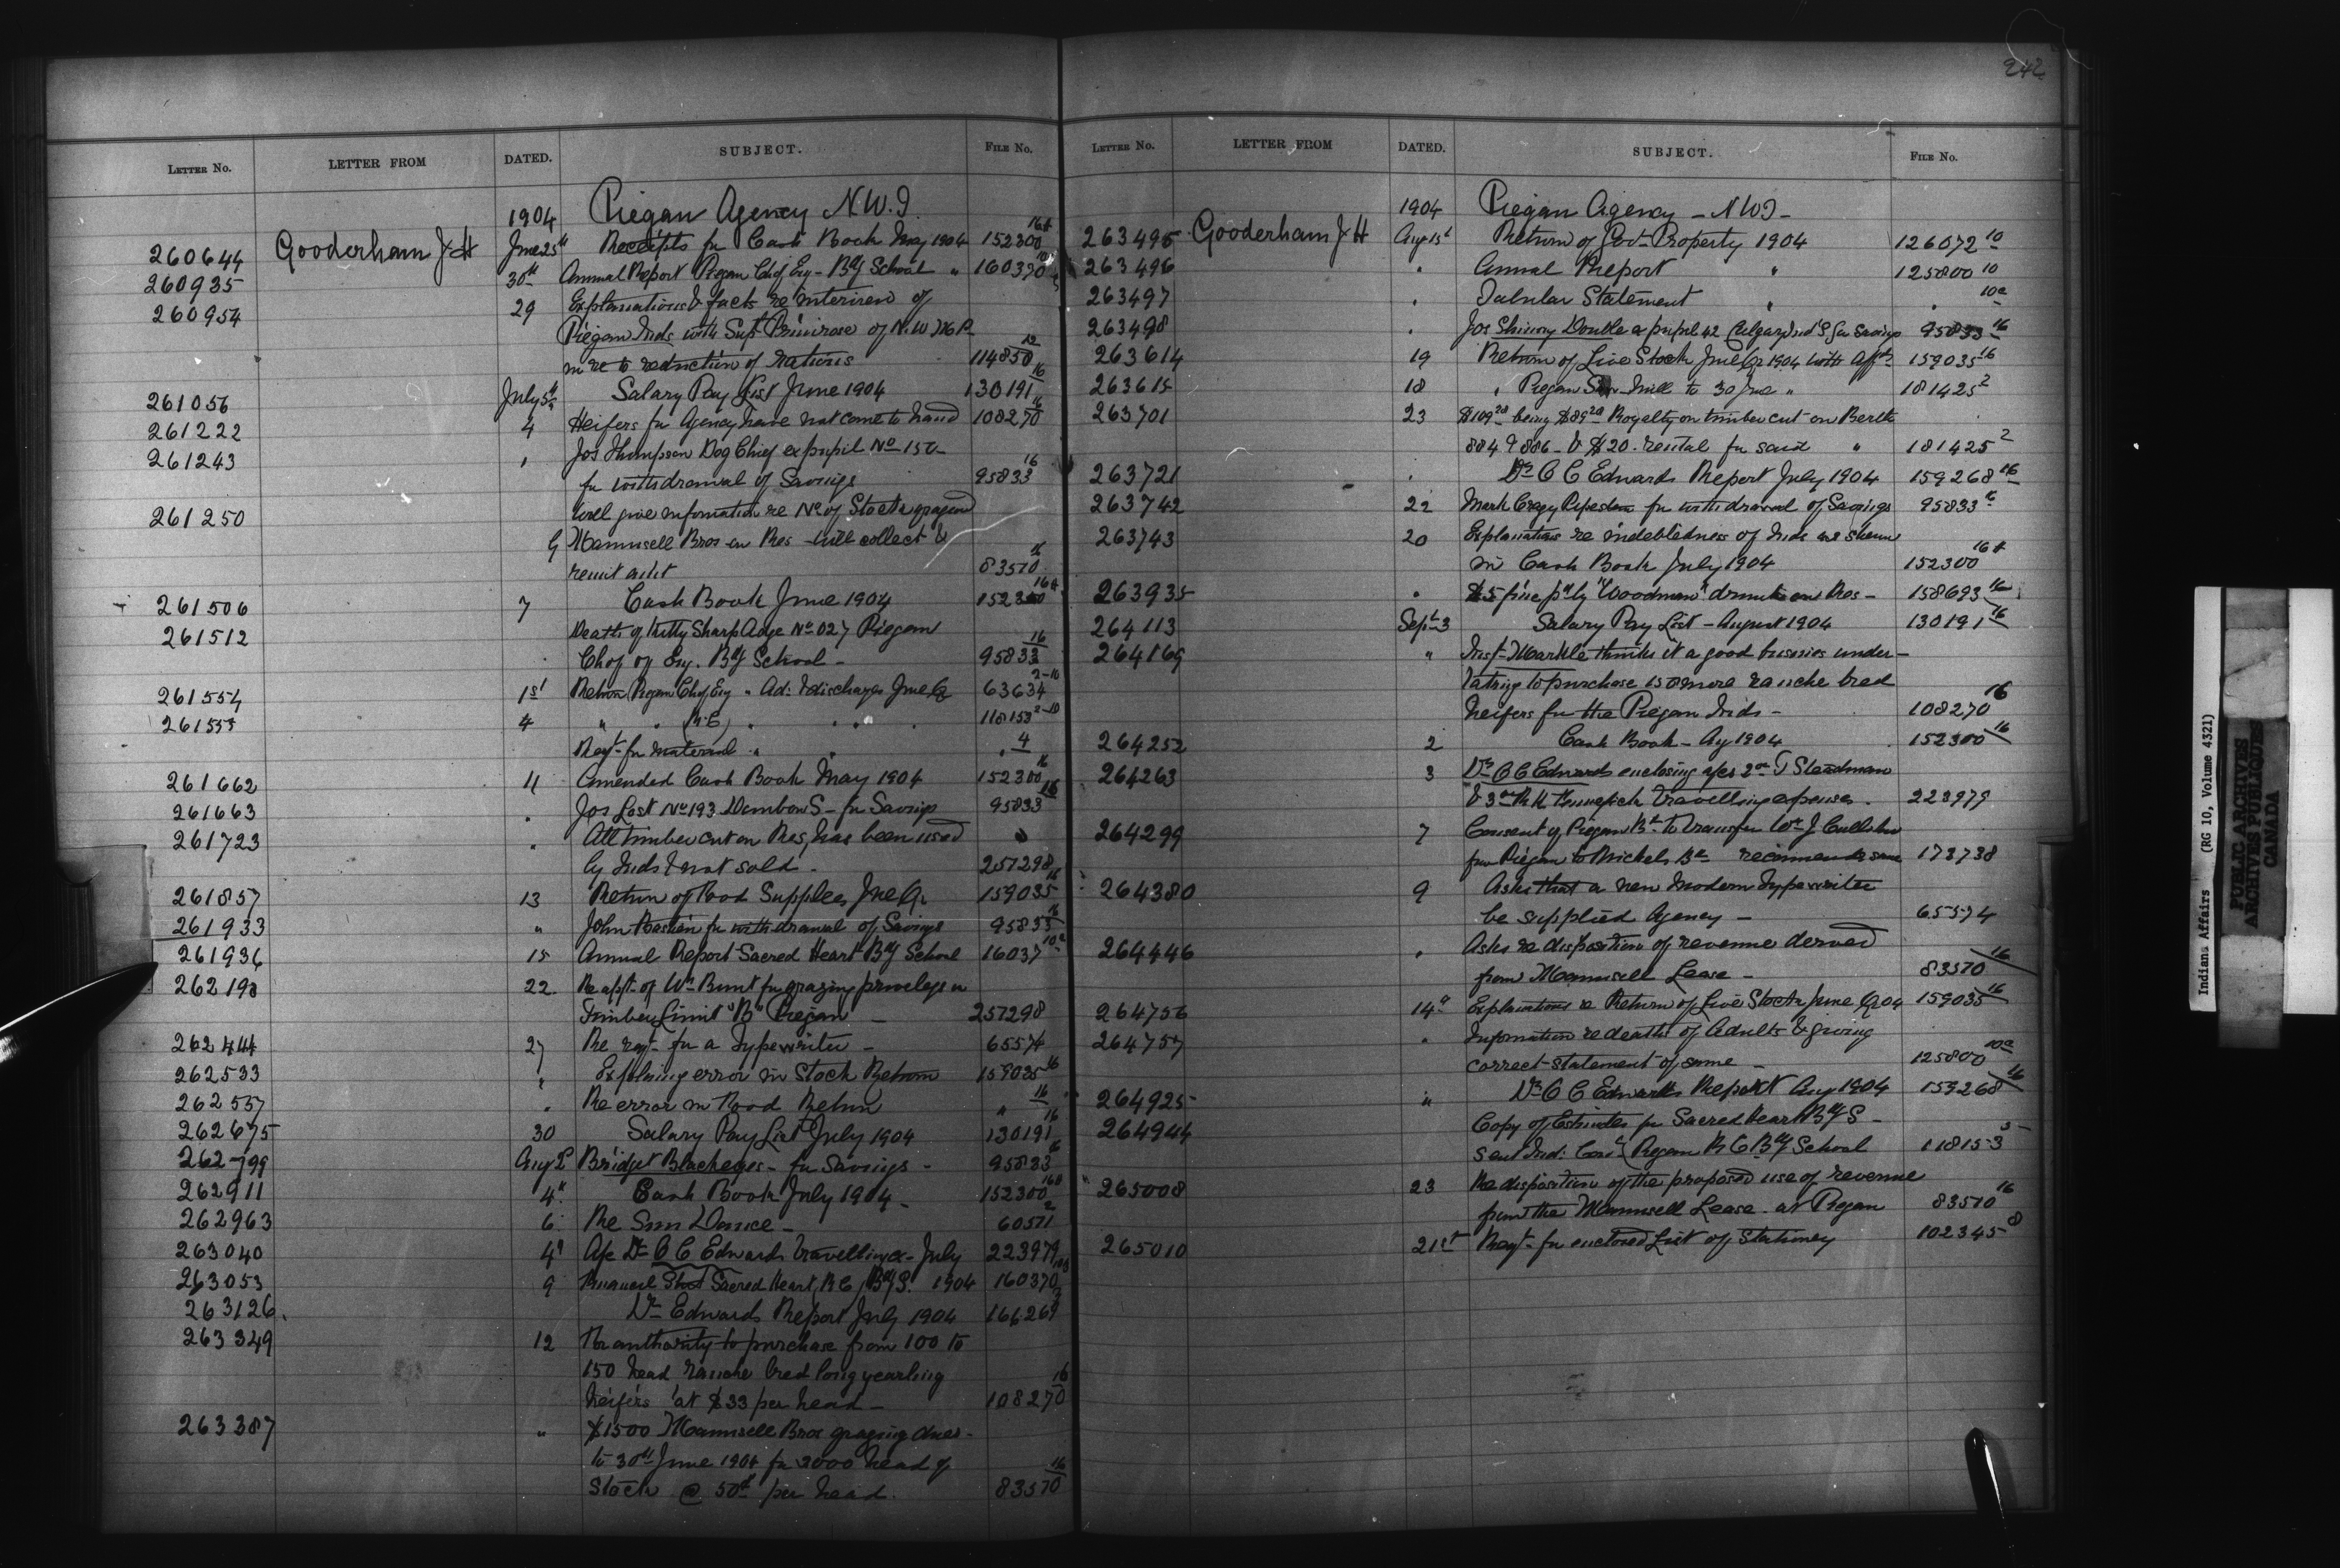 242
LETTER NO. LETTER FROM DATED. SUBJECT. FILE NO.
1904 Piegan Agency N.W.T.
260644 Gooderham J H June 25th Receipts for Cash Book May 1904 152300 16A
260935 30th Annual Report Piegan Ch of Eng - Bdg School " 160370
260954 29 Explanations & facts re interview of
Piegan Inds with Supt Primrose of N.W.M.P.
in re to reduction of rations 114850 12
261056 July 5th Salary Pay List June 1904 130191 16
261222 4 Heifers for Agency have not come to hand 108270 16
261243 " Jos Thompson Dog Chief ex pupil No 150
for withdrawal of Savings 95833 16
261250 Will give information re No of Stock grazed
9 Maunsell Bros on Res - will collect &
remit amt 83570 16
261506 7 Cash Book June 1904 152300 16A
261512 Death of Kitty Sharp Adge No 027 Piegan
Ch of Eng. Bdg School - 95833 16
261554 1st Return Piegan Ch of Eng " Ad: & discharges June Qr 63634 2-10
261555 4 " " (R.C.) " " " 118153 2-10
Reqt for material " " " 4
261662 11 Amended Cash Book May 1904 152300 16
261663 " Jos Last No 193 Dunbow S - for Savings 95833 16
261723 " All timber cut on Res, has been used
by Inds & not sold - 257298
261857 13 Return of Food Supplies June Qr 159035 16
261933 " John Bastien for withdrawal of Savings 95833 16
261936 15 Annual Report Sacred Heart Bdg School 16037 10a
262198 22 Re appt of Wm Bunt for grazing privileges in
Timber Limit "B" Piegan - 257298
262444 27 Re reqt for a Typewriter - 65574
262533 " Explaining error in Stock Return 159035 16
262557 " Re error in Food Return " 16
262675 30 Salary Pay List July 1904 130191 16
262799 Aug 2d Bridget Blackeyes - for Savings - 95833 16
262911 4th Cash Book July 1904 - 152300 16A
262963 6 Re Sun Dance - 60511 2
263040 4th A/c Dr O C Edwards travelling ex - July 223979
263053 9 Sacred Heart, R.C. Bdg S. 1904 160370
263126 Dr Edwards Report July 1904 166269
263349 12 For authority to purchase from 100 to
150 head ranche bred long yearling
heifers at $33 per head - 108270 16
263387 " $1500 Maunsell Bros grazing dues -
to 30th June 1904 for 3000 head of
Stock @ 50¢ per head. 83570 16
LETTER NO. LETTER FROM DATED. SUBJECT. FILE NO.
1904 Piegan Agency - N W T -
263495 Gooderham J H Aug 15t Return of Govt Property 1904 126072 10
263496 " Annual Report " 125800 10
263497 " Tabular Statement " " 10a
263498 " Jos Shinny Double a pupil 42 Calgary Ind'l S for Savings 95833 16
263614 19 Return of Live Stock June Qr 1904 with affdt 159035 16
263615 18 " Piegan Saw Mill to 30 June " 181425 2
263701 23 $109.20 being $89.20 Royalty on timber cut on Berth
884 & 886 - & $20. rental for said " 181425 2
263721 " Dr O C Edwards Report July 1904 159268 16
263742 22 Mark Crazy Pipestem for withdrawal of Savings 95833 16
263743 20 Explanations re indebtedness of Inds as shewn
in Cash Book July 1904 152300 16A
263935 " $5 fine pd by "Woodman" drunk on Res - 158693 16
264113 Sept 3 Salary Pay List - August 1904 130191 16
264169 " Inst- Markle thinks it a good business under-
taking to purchase 150 more ranche bred
heifers for the Piegan Inds - 108270 16
264252 2 Cash Book - Ag 1904 152300 16
264263 3 Dr O C Edwards enclosing a/cs 2nd T Steadman
& 3rd travelling expenses. 223979
264299 7 Consent of Piegan Bd to transfer Wm J
from Piegan to Michels Bd recommends same 173738
264380 9 Asks that a new modern typewriter
be supplied Agency - 65574
264446 " Asks re disposition of revenue derived
from Maunsell Lease - 83570 16
264756 14th Explanations re Return of Live Stock June Qr 04 159035 16
264757 " Information re deaths of Adults & giving
correct statement of same - 125800 10a
264925 " Dr O C Edwards Report Aug 1904 159268 16
264944 Copy of Estimates for Sacred Heart Bdg S -
sent Ind: Comr (Piegan R C Bdg School 118153 5
265008 23 Re disposition of the proposed use of revenue
from the Maunsell Lease - at Piegan 83570 16
265010 21st Reqt for enclosed List of Stationery 102345 8
Indian Affairs (RG 10, Volume 4321)
PUBLIC ARCHIVES
ARCHIVES PUBLIQUES
CANADA